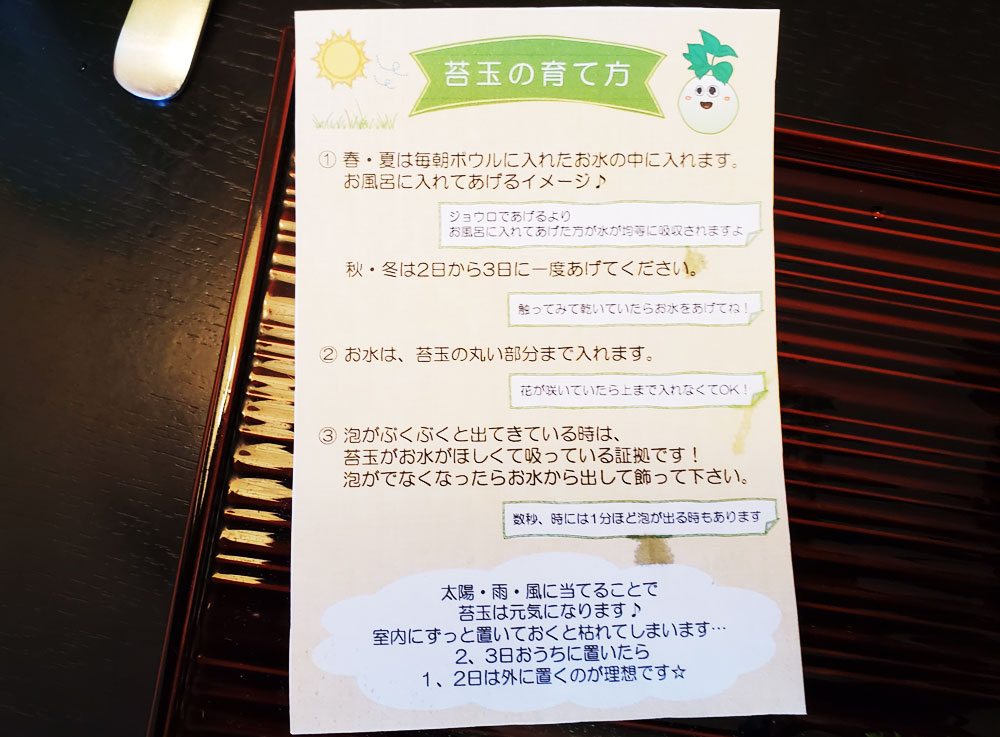 苔玉の育て方
① 春・夏は毎朝ボウルに入れたお水の中に入れます。
お風呂に入れてあげるイメージ♪
ジョウロであげるより
お風呂に入れてあげた方が水が均等に吸収されますよ
秋・冬は2日から3日に一度あげてください。
触ってみて乾いていたらお水をあげてね！
② お水は、苔玉の丸い部分まで入れます。
花が咲いていたら上まで入れなくてOK！
③ 泡がぷくぷくと出てきている時は、
苔玉がお水がほしくて吸っている証拠です！
泡がでなくなったらお水から出して飾って下さい。
数秒、時には1分ほど泡が出る時もあります
太陽・雨・風に当てることで
苔玉は元気になります♪
室内にずっと置いておくと枯れてしまいます…
２、３日おうちに置いたら
１、２日は外に置くのが理想です☆